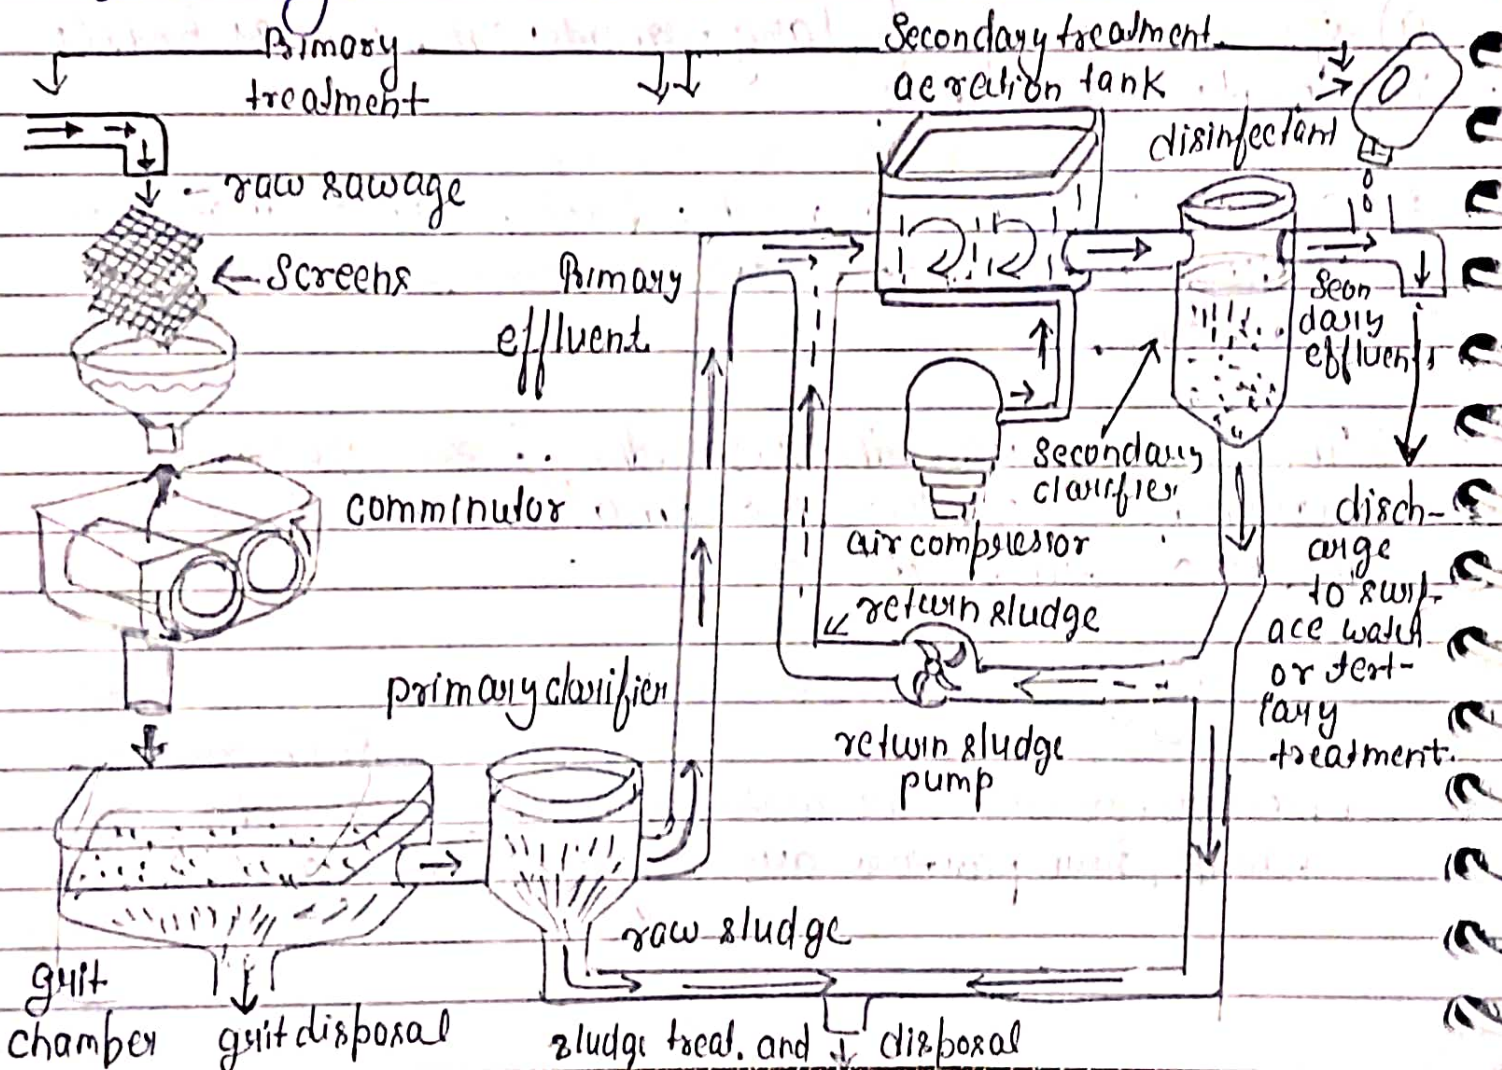 Primary
treatment
Secondary treatment
aeration tank
disinfectant
raw sawage
Screens
Primary
effluent
Seon
dary
effluents
secondary
clarifier
comminutor
air compressor
disch-
arge
to surf-
ace water
or tert-
iary
treatment.
return sludge
primary clarifier
return sludge
pump
raw sludge
grit
chamber
grit disposal
sludge treat. and disposal